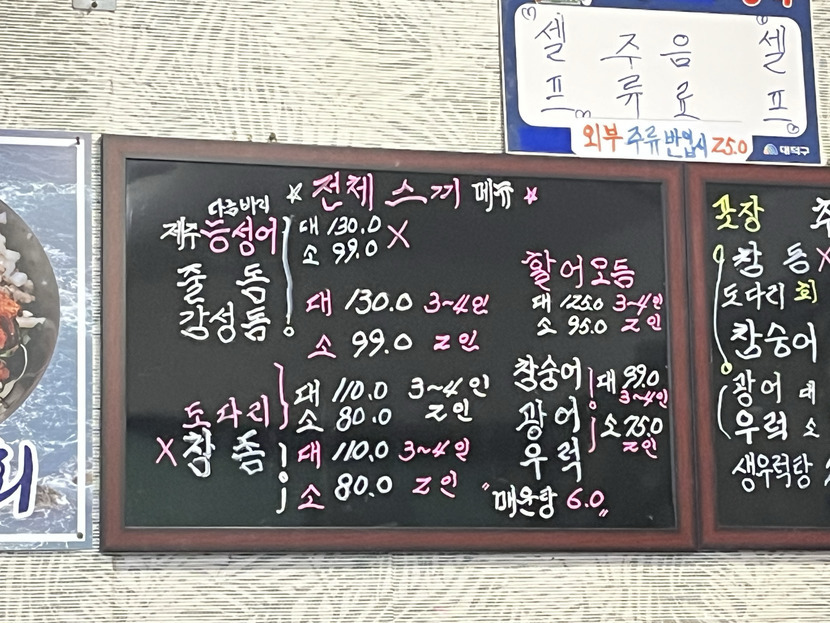 셀 주 음 셀
프 류 료 프
외부 주류 반입시 25.0
대덕구
전체 스끼 메뉴
다금바리
제주 능성어 대 130.0 X
소 99.0
줄 돔
감성돔
대 130.0 3~4인
소 99.0 2인
도다리 대 110.0 3~4인
소 80.0 2인
X 참 돔 대 110.0 3~4인
소 80.0 2인
활어모듬
대 125.0 3~4인
소 95.0 2인
참숭어 대 99.0
3~4인
광 어 소 75.0
2인
우 럭
"매운탕 6.0"
참 돔 X
도다리 회
참숭어
광어 대
우럭 소
생우럭탕
회